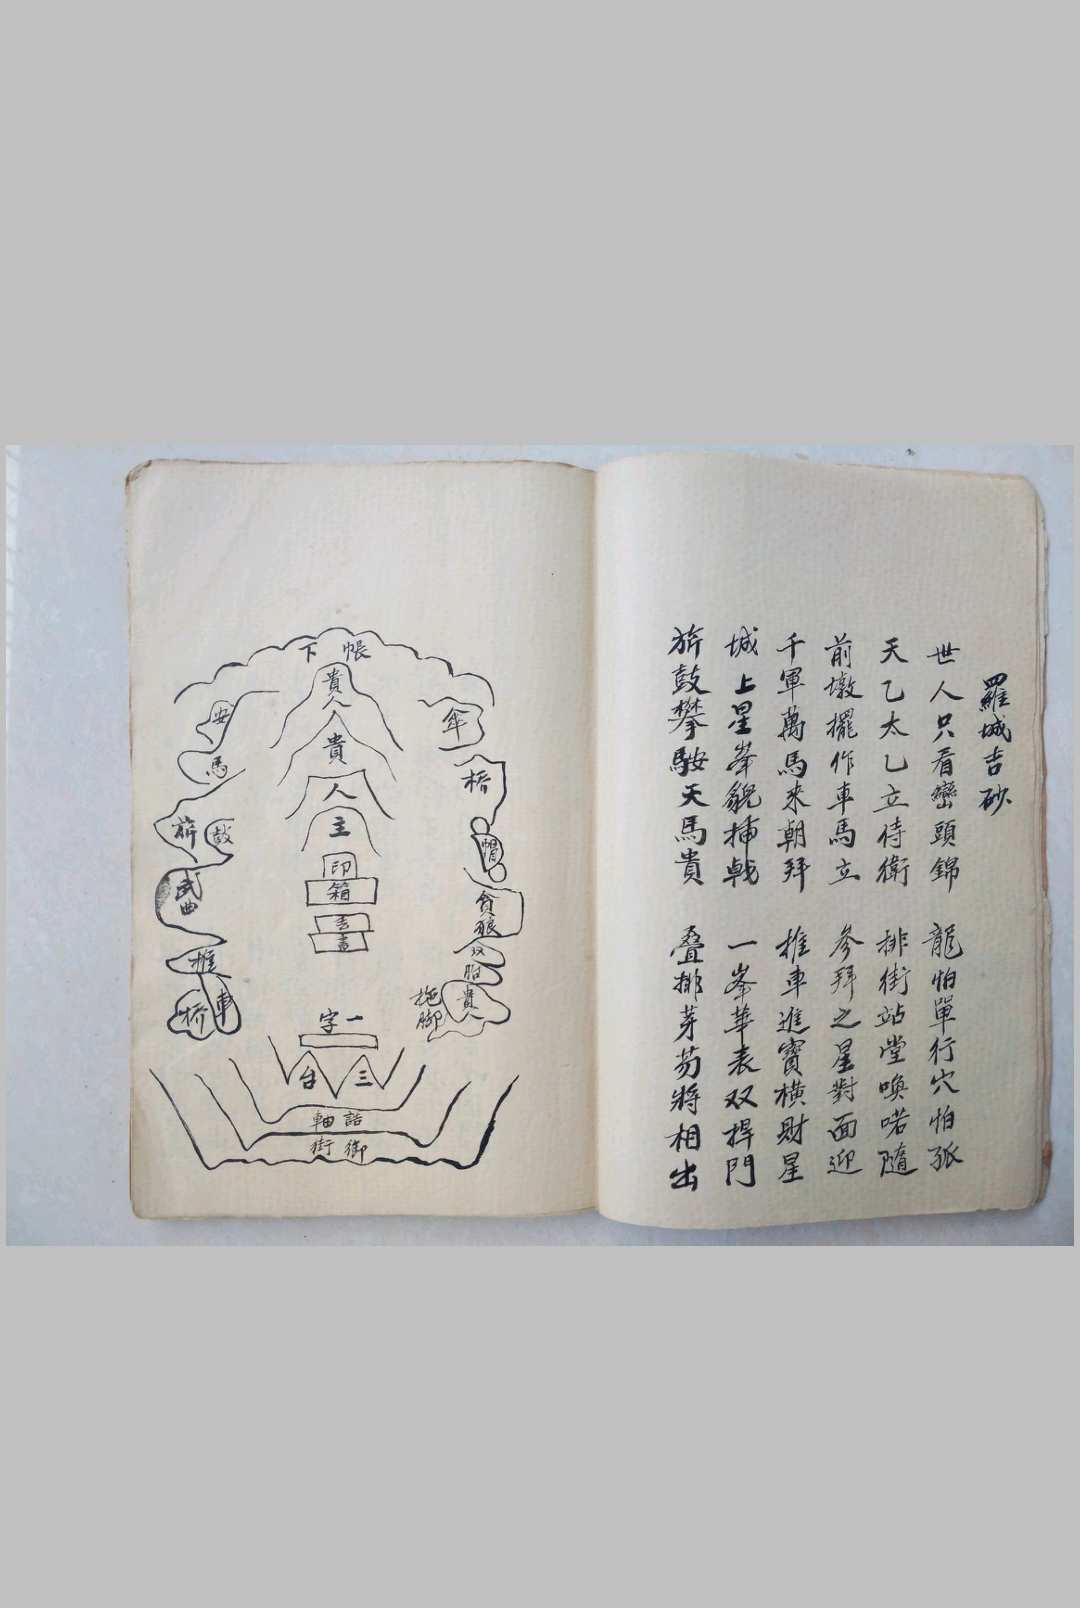 羅城吉砂
世人只看巒頭錦 龍怕單行穴怕孤
天乙太乙立侍衛 排街站堂喚喏隨
前墩擺作車馬立 參拜之星對面迎
千軍萬馬來朝拜 推車進寶橫財星
城上星峯貌揷戟 一峯華表双捍門
旂鼓攀鞍天馬貴 叠排芽笏將相出
帳下
貴人
傘
安馬
貴人
轎
主
旂鼓
帽
印
箱
武曲
貪狼
書
推車
双胎貴人
拖脚
轎
一字
三台
誥軸
御街